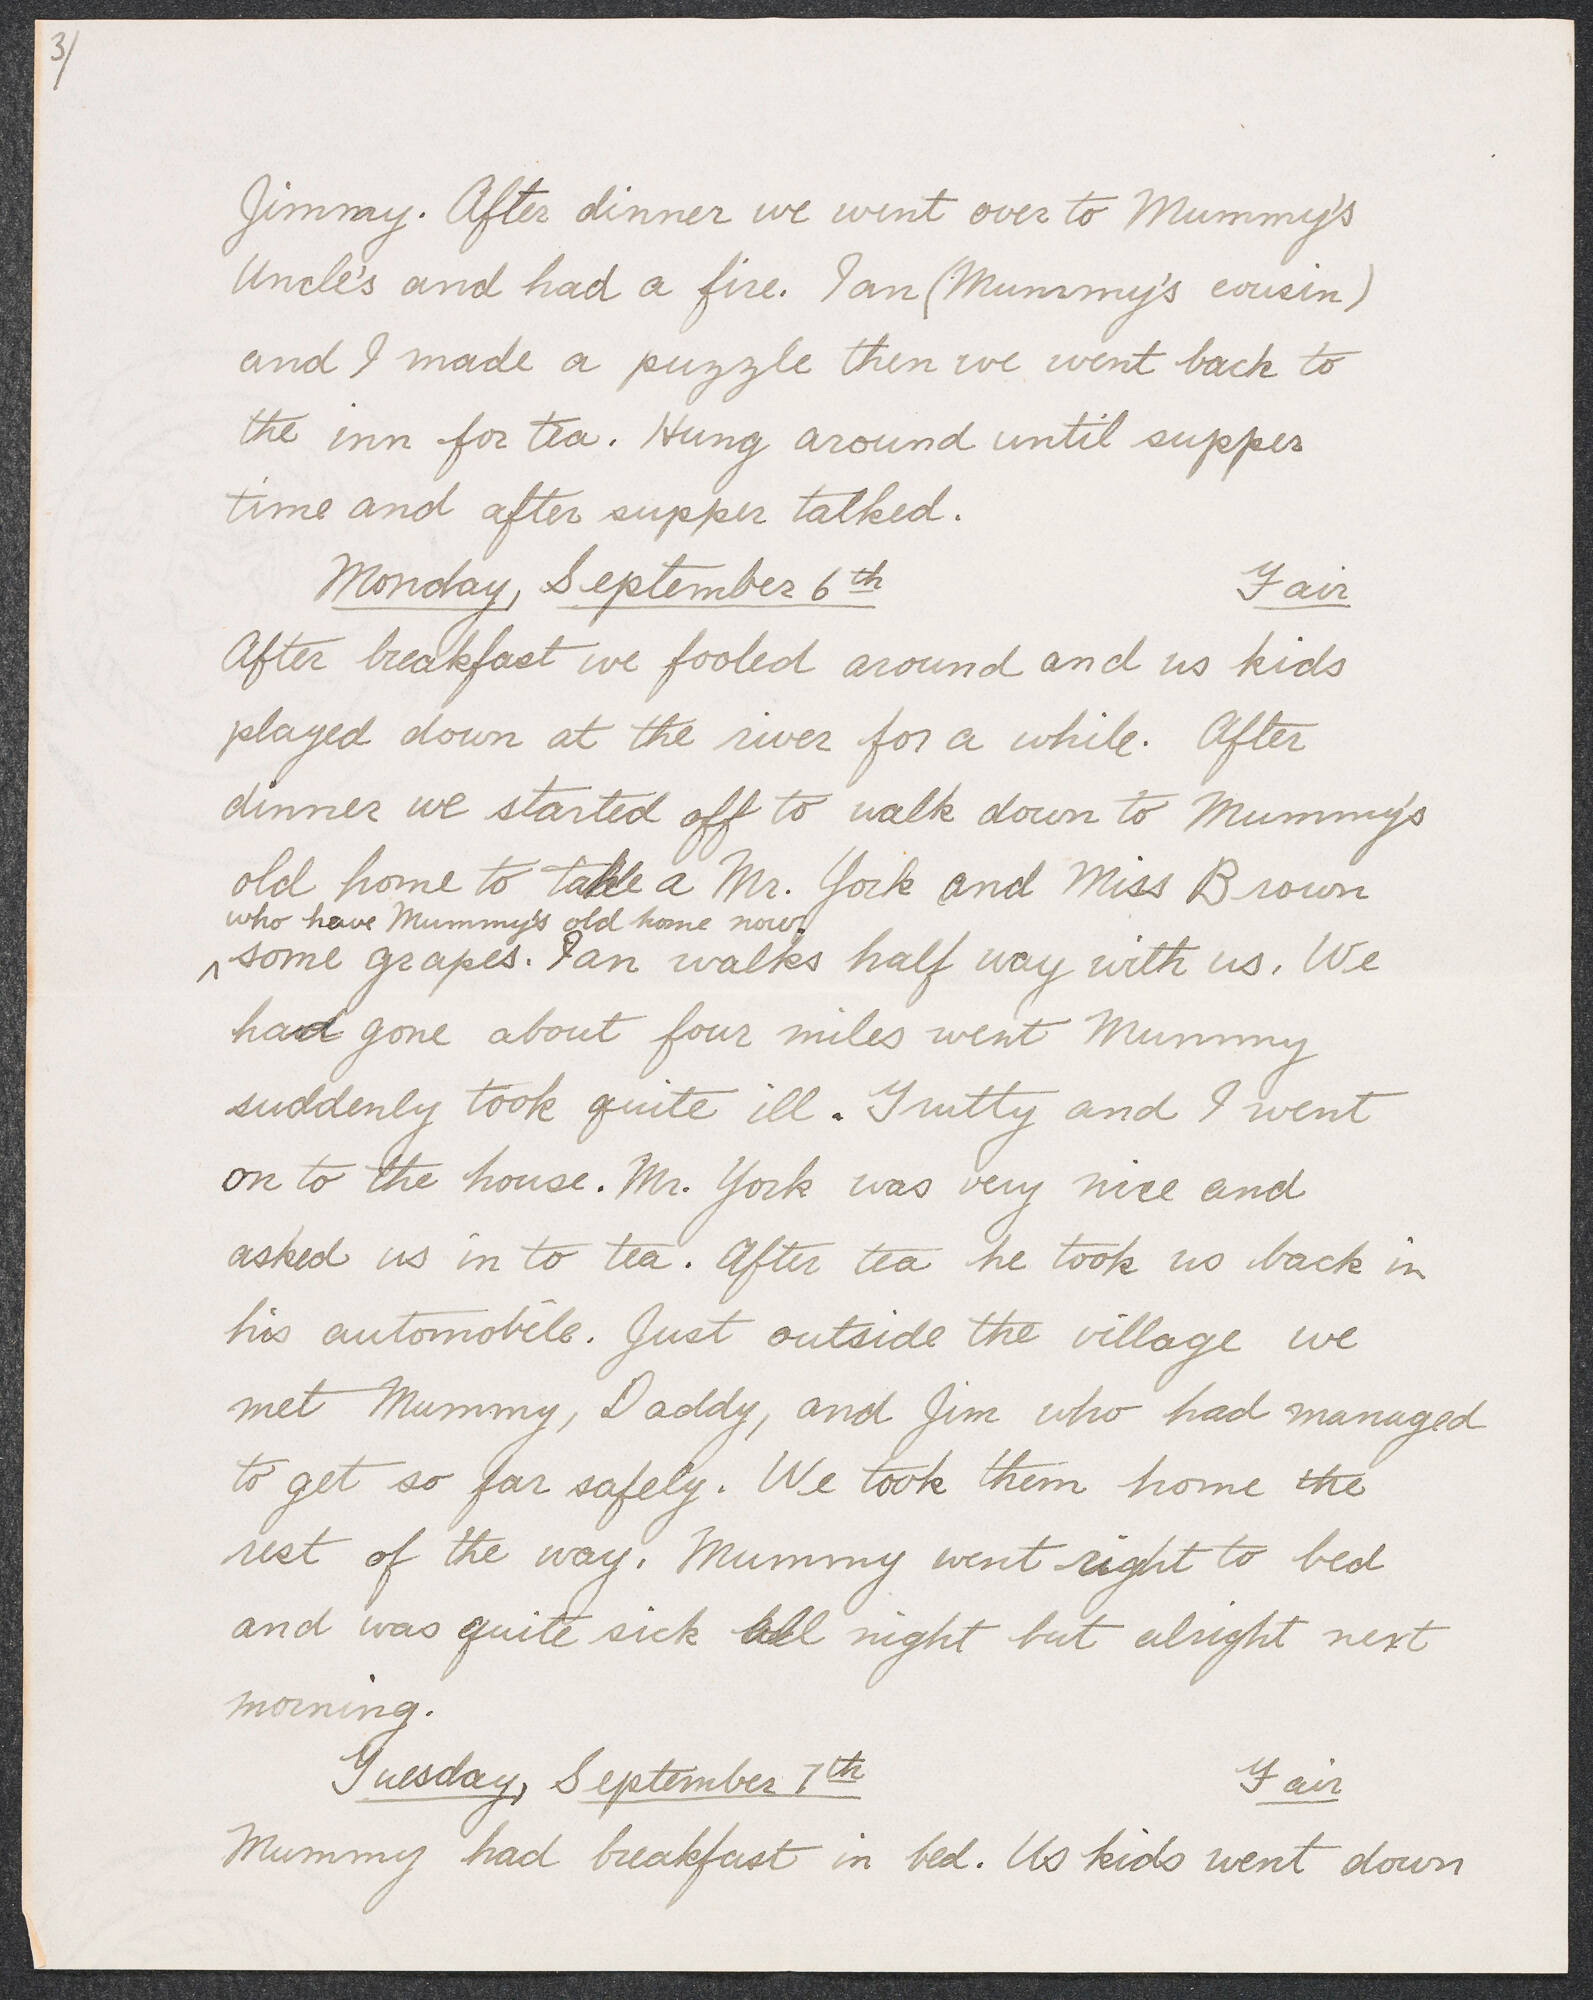 3/
Jimmy. After dinner we went over to Mummy's
Uncle's and had a fire. Ian (Mummy's cousin)
and I made a puzzle then we went back to
the inn for tea. Hung around until supper
time and after supper talked.
Monday, September 6th Fair
After breakfast we fooled around and us kids
played down at the river for a while. After
dinner we started off to walk down to Mummy's
old home to take a Mr. York and Miss Brown
who have Mummy's old home now.
^ some grapes. Ian walks half way with us. We
had gone about four miles went Mummy
suddenly took quite ill. Trutty and I went
on to the house. Mr. York was very nice and
asked us in to tea. After tea he took us back in
his automobile. Just outside the village we
met Mummy, Daddy, and Jim who had managed
to get so far safely. We took them home the
rest of the way. Mummy went right to bed
and was quite sick all night but alright next
morning.
Tuesday, September 7th Fair
Mummy had breakfast in bed. Us kids went down